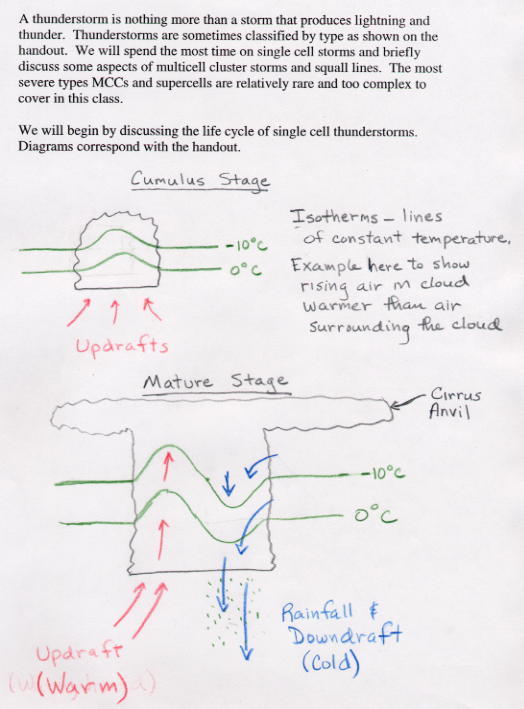 A thunderstorm is nothing more than a storm that produces lightning and
thunder. Thunderstorms are sometimes classified by type as shown on the
handout. We will spend the most time on single cell storms and briefly
discuss some aspects of multicell cluster storms and squall lines. The most
severe types MCCs and supercells are relatively rare and too complex to
cover in this class.
We will begin by discussing the life cycle of single cell thunderstorms.
Diagrams correspond with the handout.
Cumulus Stage
-10°C
0°C
Isotherms – lines
of constant temperature.
Example here to show
rising air in cloud
warmer than air
surrounding the cloud
Updrafts
Mature Stage
Cirrus
Anvil
-10°C
0°C
Rainfall &
Downdraft
(Cold)
Updraft
(Warm)